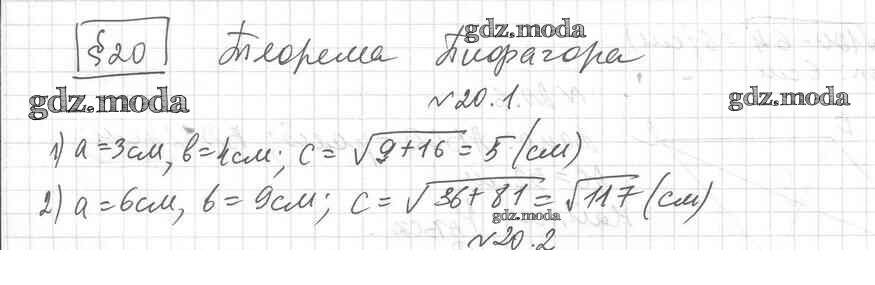 § 20 Теорема Пифагора
gdz.moda
gdz.moda
gdz.moda
№ 20.1.
1) a = 3 см, b = 4 см; c = √9+16 = 5 (см)
2) a = 6 см, b = 9 см; c = √36+81 = √117 (см)
gdz.moda
№ 20.2